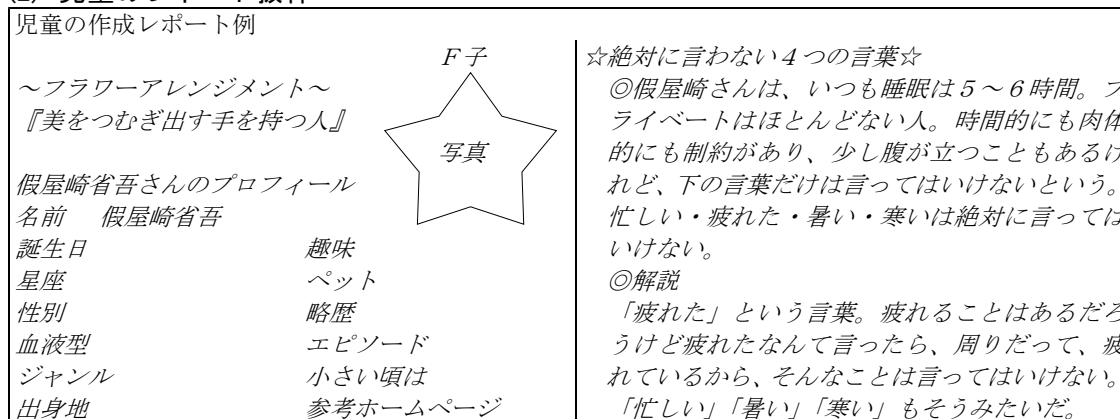 児童の作成レポート例
F子
～フラワーアレンジメント～
『美をつむぎ出す手を持つ人』
写真
假屋崎省吾さんのプロフィール
名前　假屋崎省吾
誕生日　趣味
星座　ペット
性別　略歴
血液型　エピソード
ジャンル　小さい頃は
出身地　参考ホームページ
☆絶対に言わない４つの言葉☆
◎假屋崎さんは、いつも睡眠は５～６時間。プ
ライベートはほとんどない人。時間的にも肉体
的にも制約があり、少し腹が立つこともあるけ
れど、下の言葉だけは言ってはいけないという。
忙しい・疲れた・暑い・寒いは絶対に言っては
いけない。
◎解説
「疲れた」という言葉。疲れることはあるだろ
うけど疲れたなんて言ったら、周りだって、疲
れているから、そんなことは言ってはいけない。
「忙しい」「暑い」「寒い」もそうみたいだ。